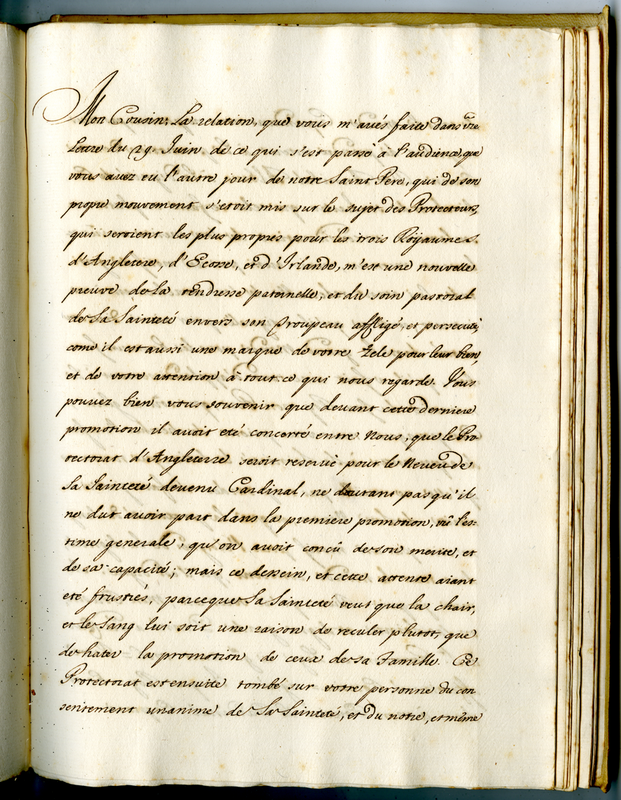 Mon Cousin. La relation, que vous m'avés faite dans vre
Lettre du 29. Juin de ce qui s'est passé à l'audience, que
vous avez eu l'autre jour de notre Saint Pere, qui de son
propre mouvement s'etoit mis sur le sujet des Protecteurs,
qui seroient les plus propres pour les trois Röyaumes
d'Angleterre, d'Ecosse, et d'Irlande, m'est une nouvelle
preuve de la tendresse paternelle, et du soin pastoral
de Sa Sainteté envers son Troupeau affligé, et persecuté;
come il est aussi une marque de votre Zele pour leur bien,
et de votre attention à tout ce qui nous regarde. Vous
pouvez bien vous souvenir que devant cette derniere
promotion il avoit eté concerté entre Nous, que le Pro
tectorat d'Angleterre seroit reservé pour le Neveu de
Sa Sainteté devenu Cardinal, ne doutant pas qu'il
ne dut avoir part dans la premiere promotion, vû l'es-
time generale, qu'on avoit conçû de son merite, et
de sa capacité; mais ce dessein, et cette attente aiant
eté frustrés, parceque Sa Sainteté veut que la chair,
et le sang lui soit une raison de reculer plutot, que
de hater la promotion de ceux de sa Famille. Ce
Protectorat est ensuite tombé sur votre personne du con
sentement unanime de Sa Sainteté, et du notre, et même